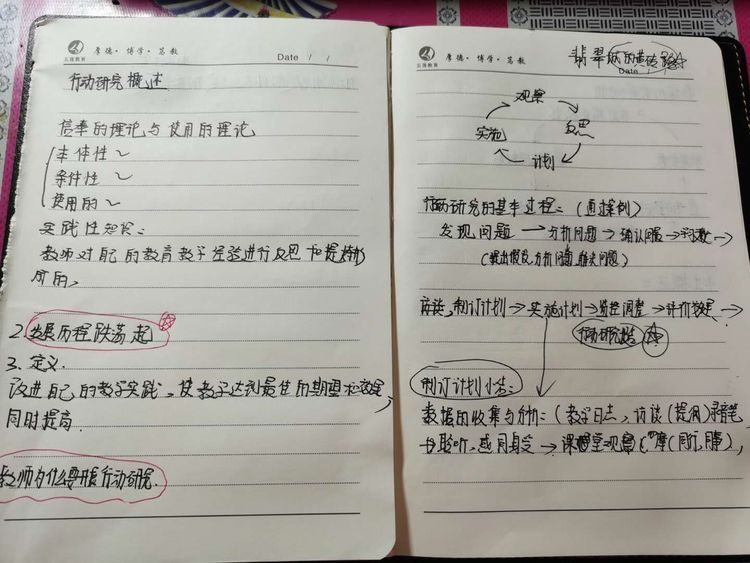 厚德·博学·笃教
Date / /
行动研究概述
信奉的理论与使用的理论
本体性✓
条件性✓
使用的✓
实践性知识:
教师对自己的教育教学经验进行反思和提炼形
成的。
2.发展历程跌荡起
3.定义.
改进自己的教学实践,使教学达到最佳的期望和效果,
同时提高.
教师为什么要开展行动研究.
厚德·博学·笃教
Date
观察
反思
实施
计划
行动研究的基本过程:(通过案例)
发现问题→分析问题→确认问题→
(提出假设,分析问题,相关问题)
制订计划→实施计划→监控调整→评价效果→
行动研究报告
制订计划小结:
数据的收集与分析:(教学日志、访谈(提问)录音笔
→课堂观察(同行,同事),